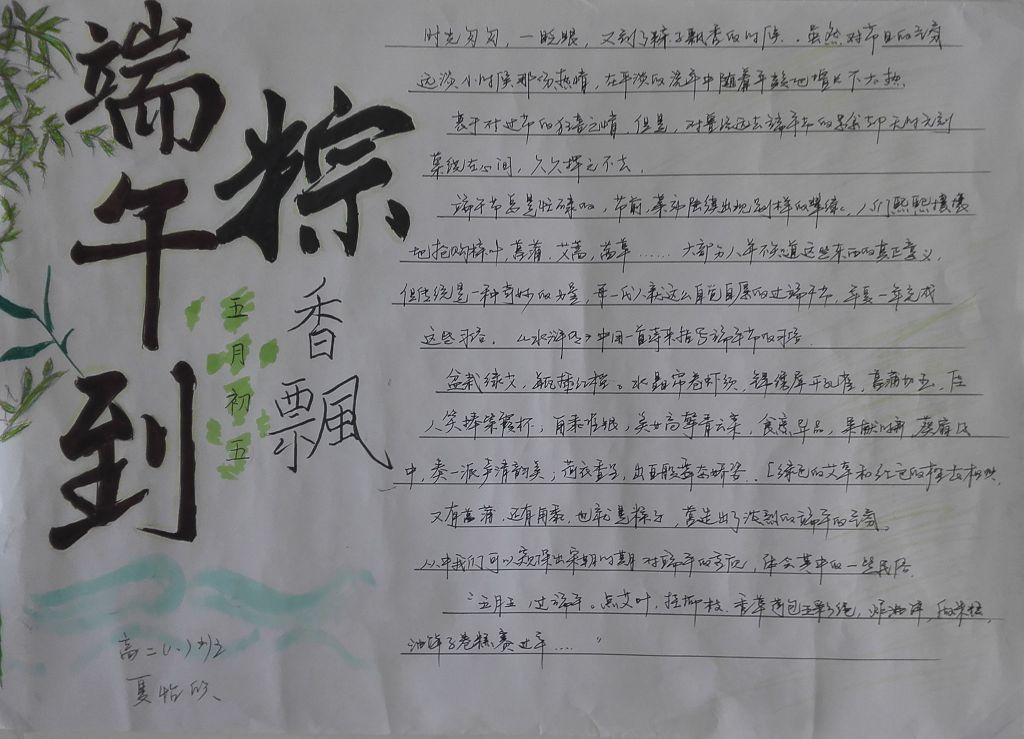 端午到
粽
香飘
五月初五
时光匆匆，一眨眼，又到了粽子飘香的时候．虽然对节日的
远没小时候那份热情，在平淡的流年中随着年龄地增长不太热
衷于对过节的 之情，但是，对曾经远去端午节的 却无时无刻
萦绕在心间，久久挥之不去．
端午节总是忙碌的，节前， 陆续出现 样的 ，人们熙熙攘攘
地抢购粽叶，菖蒲，艾蒿， 草……大部分人并不知道这些东西的真正意义，
但传统是一种奇妙的力量，每一代人就这么自觉自愿的过端午节，年复一年完成
这些习俗．《水浒 》中用一首 来描写端午节的习俗．
盆栽绿艾，瓶插红榴。水晶帘卷虾须，锦绣屏开孔雀，菖蒲切玉，佳
人笑捧紫霞杯，角黍堆银，美女高擎青云案，食烹异品，果献时新，葵扇风
中，奏一派声清韵美；荷衣香里，出百般舞态娇姿．［绿色的艾草和红色的榴 相映，
又有菖蒲，还有角黍，也就是粽子，营造出了浓烈的端午的 。
从中我们可以窥探出宋朝时期对端午的 ，体会其中的一些民俗．
五月五，过端午。点艾叶，挂柳枝，香草荷包五彩绳，炸油饼，
油饼子卷糕赛过年……"
高二（一）班
夏怡欣